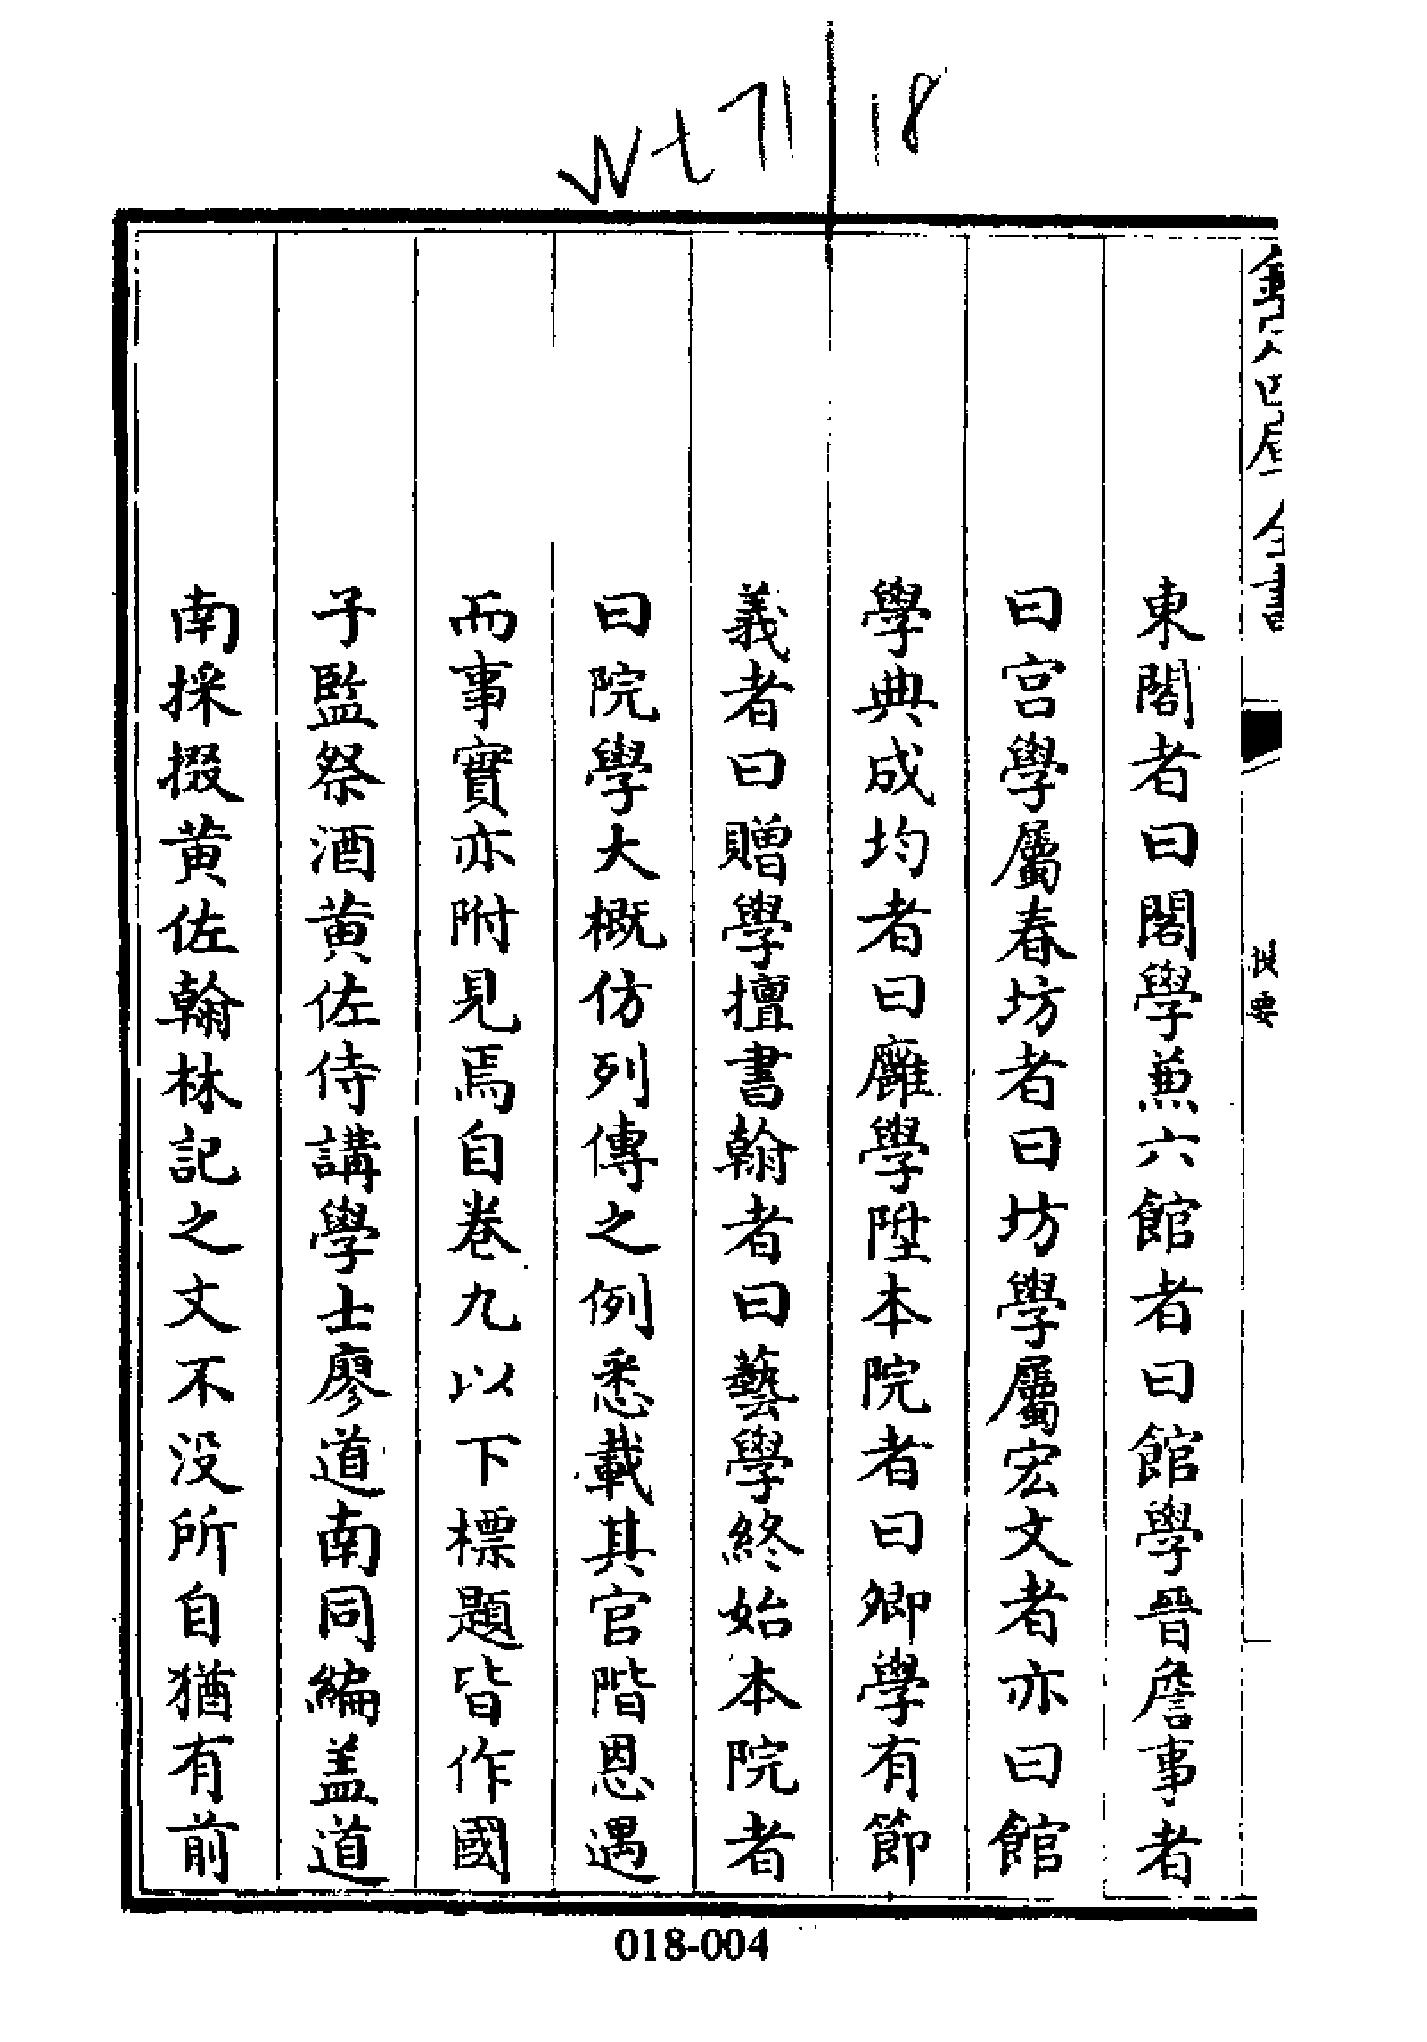 欽定四庫全書
提要
東閣者曰閣學兼六館者曰館學晉詹事者
曰宫學屬春坊者曰坊學屬宏文者亦曰館
學典成均者曰廱學陞本院者曰卿學有節
義者曰贈學擅書翰者曰藝學終始本院者
曰院學大概仿列傳之例悉載其官階恩遇
而事實亦附見焉自卷九以下標題皆作國
子監祭酒黄佐侍講學士廖道南同編盖道
南採掇黄佐翰林記之文不没所自猶有前
018-004